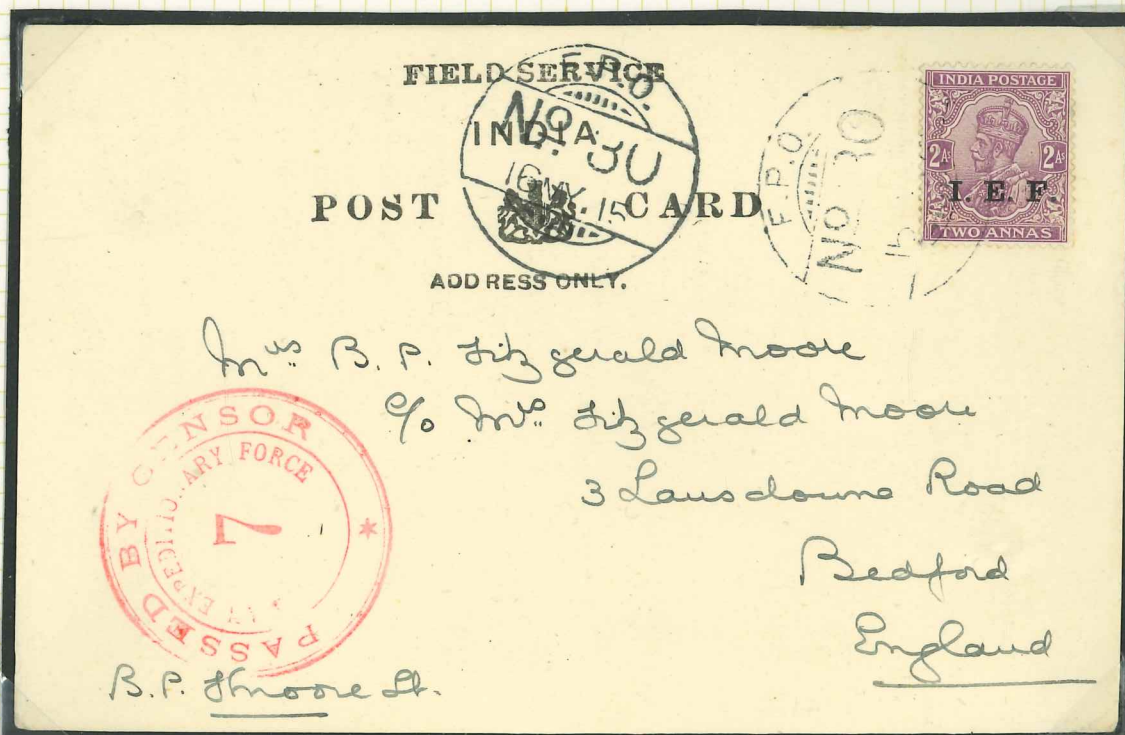 FIELD SERVICE
INDIA
POST CARD
ADDRESS ONLY.
F.P.O.
No. 30
16 MY. 15
F.P.O.
No 30
15
INDIA POSTAGE
2As 2As
I. E. F.
TWO ANNAS
Mrs B. P. Fitzgerald Moore
c/o Mrs Fitzgerald Moore
3 Lansdowne Road
Bedford
England
PASSED BY CENSOR
FORCE
7
B. P. Fmoore Lt.